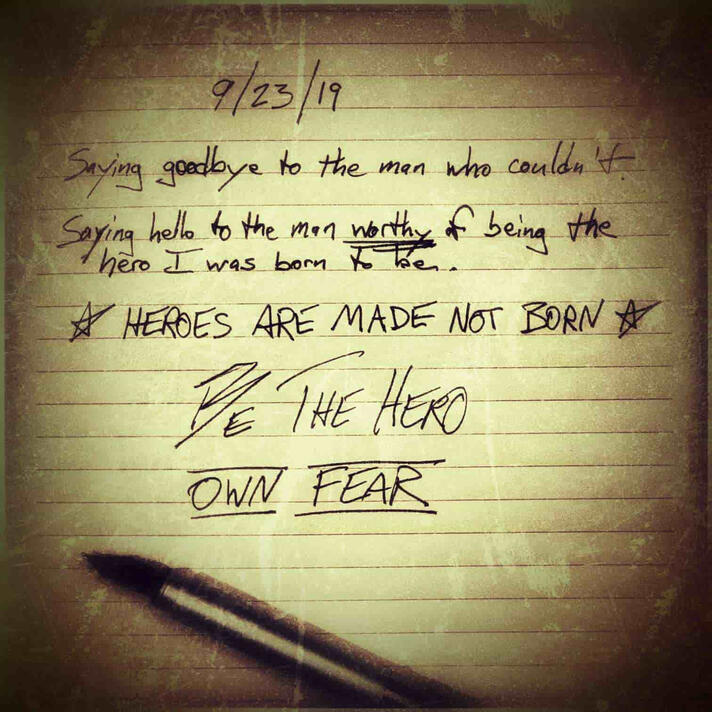 9/23/19
Saying goodbye to the man who couldn't.
Saying hello to the man worthy of being the
hero I was born to be.
☆ HEROES ARE MADE NOT BORN ☆
BE THE HERO
OWN FEAR